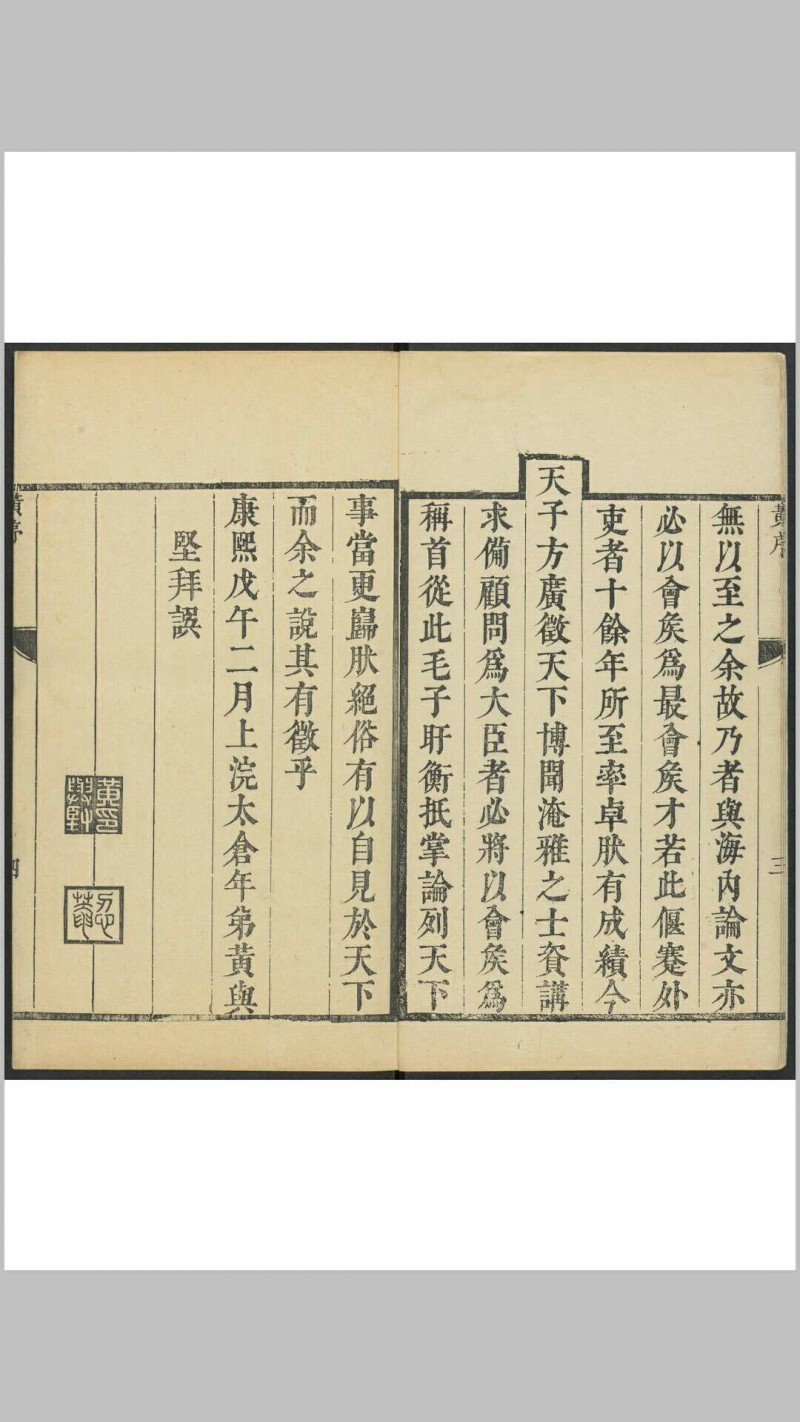 黄序
三
無以至之余故乃者與海內論文亦
必以會矦爲最會矦才若此偃蹇外
吏者十餘年所至率卓肰有成績今
天子方廣徵天下博聞淹雅之士資講
求備顧問爲大臣者必將以會矦爲
稱首從此毛子盱衡抵掌論列天下
事當更巋肰絕俗有以自見於天下
而余之說其有徵乎
康熙戊午二月上浣太倉年弟黃與
堅拜譔
黃序
四